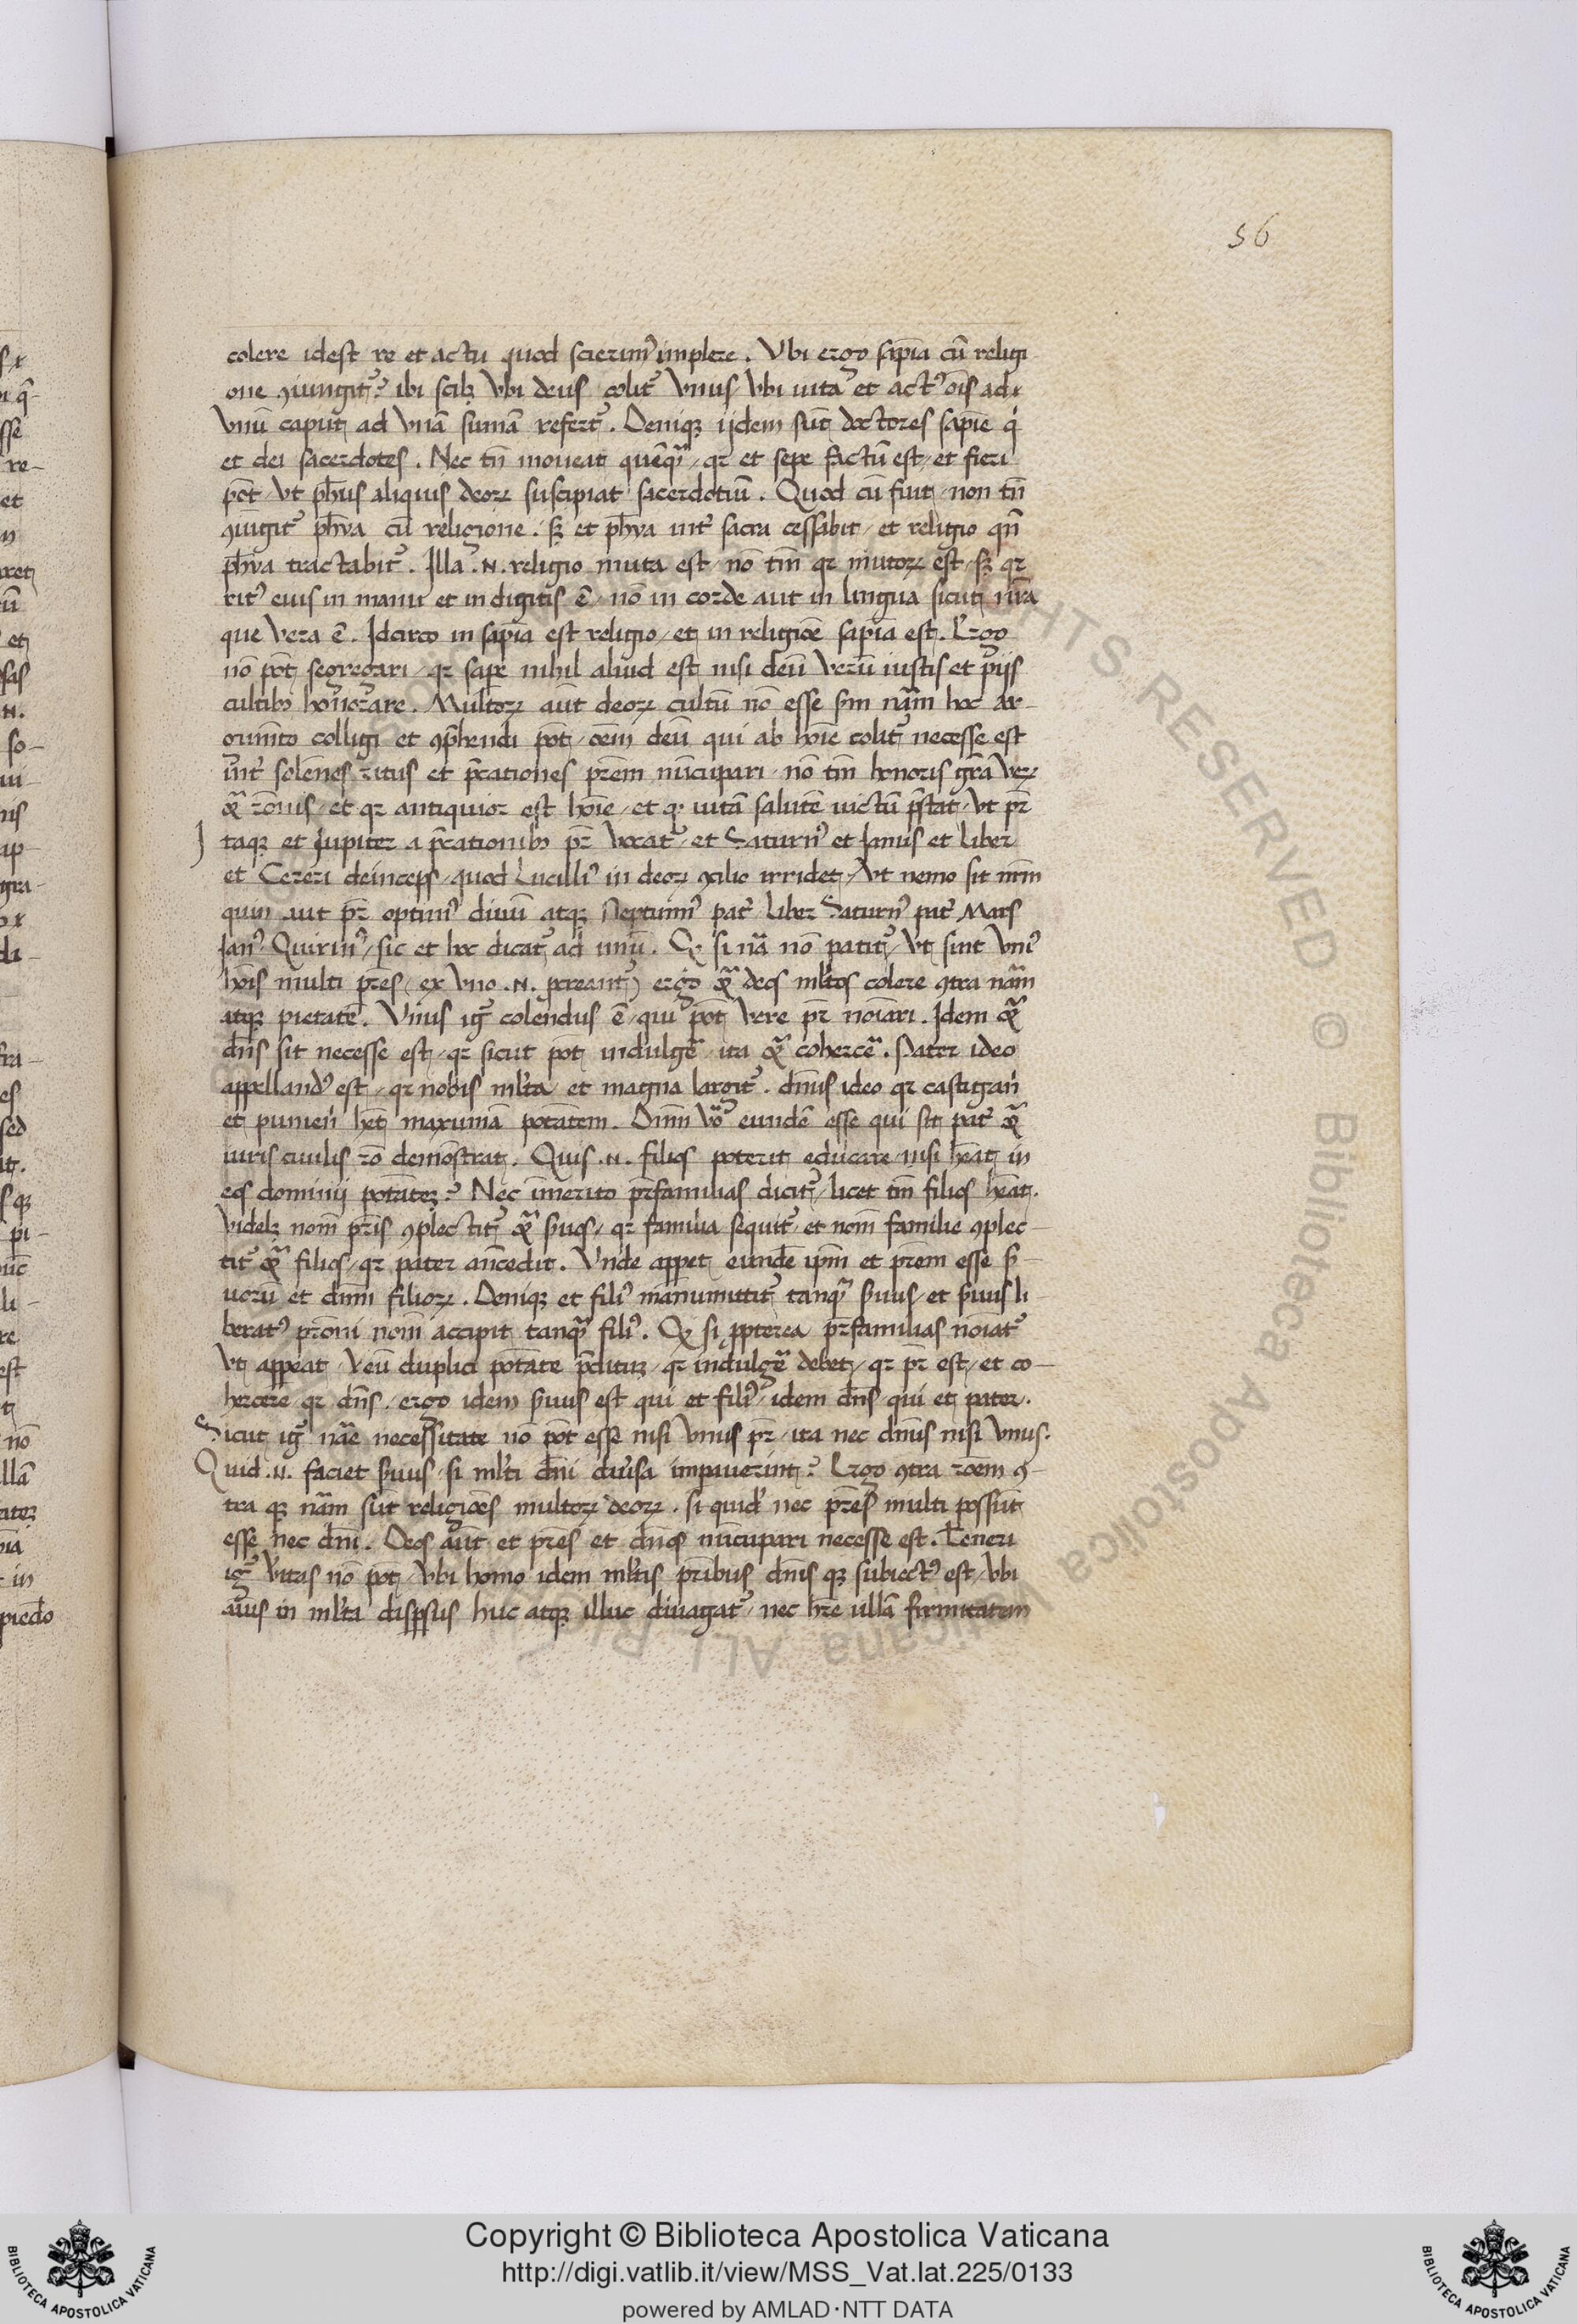 56
colere idest re et actu quod scierimꝰ implere. Vbi ergo sapīa cū religi
one ꝯiungit᷑? ibi scilꝫ Vbi deus colit᷑ Vnus Vbi uita et actꝰ oīs ad
Vnū caput ad Vnā sumā refert᷑. Deniqꝫ ijdem sūt doctores sapīe q̇
et dei sacerdotes. Nec tn̄ moueat quēqᷓ/ qꝛ et sepe factū est/ et fieri
pōt/ Vt ph̄us aliquis deoꝝ suscipiat sacerdotiū. Quod cū fiut/ non tn̄
ꝯiūgit᷑ ph̄ya cū religione. sꝫ et ph̄ya int᷑ sacra cessabit/ et religio qn̄
ph̄ya tractabit᷑. Illa .N. religio muta est/ nō tm̄ qꝛ mutoꝝ est/ sꝫ qꝛ
ritꝰ eius in manu et in digitis ē/ nō in corde aut in lingua sicut nr̄a
que Vera ē. Idcirco in sapīa est religio/ et in religiōe sapīa est. Ergo
nō pōt segregari/ qꝛ sapē nihil aliud est nisi deū Verū iustis et pijs
cultibꝫ honorare. Multoꝝ aūt deoꝝ cultū nō esse s̄m nām hoc ar-
gumīto colligi et ꝯp̄hendi pōt/ oēm deū qui ab hōie colit᷑ necesse est
int᷑ solēnes ritus et p̄cationes pr̄em nūcupari/ nō tm̄ honoris gr̄a Veꝝ
qᷓ rōnis/ et qꝛ antiquior est hōie/ et qꝛ uitā salutē uictū p̄stat/ Vt pr̄
I taqꝫ et Iupiter a p̄cationibꝫ pr̄ Vocat᷑/ et Saturnꝰ et Ianus et Liber
et Ceteri deinceps/ quod Lucillꝰ in deoꝝ ꝯcilio irridet/ Vt nemo sit nr̄m
quin aut pr̄ optimꝰ diuū atqꝫ Neptunꝰ pat᷑/ Liber Saturnꝰ pat᷑ Mars
Ianꝰ Quirinꝰ/ sic et hoc dicat᷑ ad unū. Qꝫ si nā nō patit᷑/ Vt sint Vniꝰ
hōis multi pr̄es/ ex Vno .N. ꝓcreant᷑) ergo qᷓ deos ml̄tos colere ꝯtra nām
atqꝫ pietatē. Vnus ig᷑ colendus ē/ qui pōt Vere pr̄ noīari. Idem qᷓ
dn̄s sit necesse est/ qꝛ sicut pōt indulgē/ ita qᷓ cohercē. Pater ideo
appellandꝰ est/ qꝛ nobis ml̄ta et magna largit᷑. dn̄us ideo qꝛ castigan̄
et punien̄ hēt maxumā potātem. Dn̄m Vō eundē esse qui sit pat᷑ qᷓ
iuris ciuilis rō demōstrat. Quis .N. filios poterit educare/ nisi hēat in
eos dominij potātem? Nec īmerito pr̄familias dicit᷑/ licet tm̄ filios hēat.
Videlꝫ nom̄ pr̄is ꝯplectit᷑ qᷓ s̄uos/ qꝛ familia sequit᷑ et nom̄ familie ꝯplec-
tit᷑ qᷓ filios/ qꝛ pater an̄cedit. Vnde apparet eundē ip̄m et pr̄em esse s̄-
uorū et dn̄m filioꝝ. Deniqꝫ et filiꝰ manumittit᷑ tanqᷓ s̄uus et s̄uus li-
beratꝰ pr̄oni nom̄ accipit tanqᷓ filiꝰ. Qꝫ si ꝓpterea pr̄familias noīat᷑
Vt appeat/ eū duplici potāte p̄ditū/ qꝛ indulgē debet/ qꝛ pr̄ est/ et co-
hercere/ qꝛ dn̄s. ergo idem s̄uus est qui et filiꝰ/ idem dn̄s qui et pater.
Sicut ig᷑ nāe necessitate nō pōt esse nisi Vnus pr̄/ ita nec dn̄us nisi Vnus.
Quid .N. faciet s̄uus/ si ml̄ti dn̄i diu̓sa impauerint? Ergo ꝯtra rōem ꝯ-
tra qꝫ nām sūt religiōes multoꝝ deoꝝ. si quid᷑ nec pr̄es multi possūt
esse nec dn̄i. Deos aūt et pr̄es et dn̄os nūcupari necesse est. Teneri
ig᷑ V̓itas nō pōt/ Vbi homo idem ml̄tis pr̄ibus dn̄is qꝫ subiectꝰ est/ Vbi
aīus in ml̄ta disp̱sus huc atqꝫ illuc diuagat᷑/ nec hr̄e ullā firmitatem
Copyright © Biblioteca Apostolica Vaticana
http://digi.vatlib.it/view/MSS_Vat.lat.225/0133
powered by AMLAD·NTT DATA